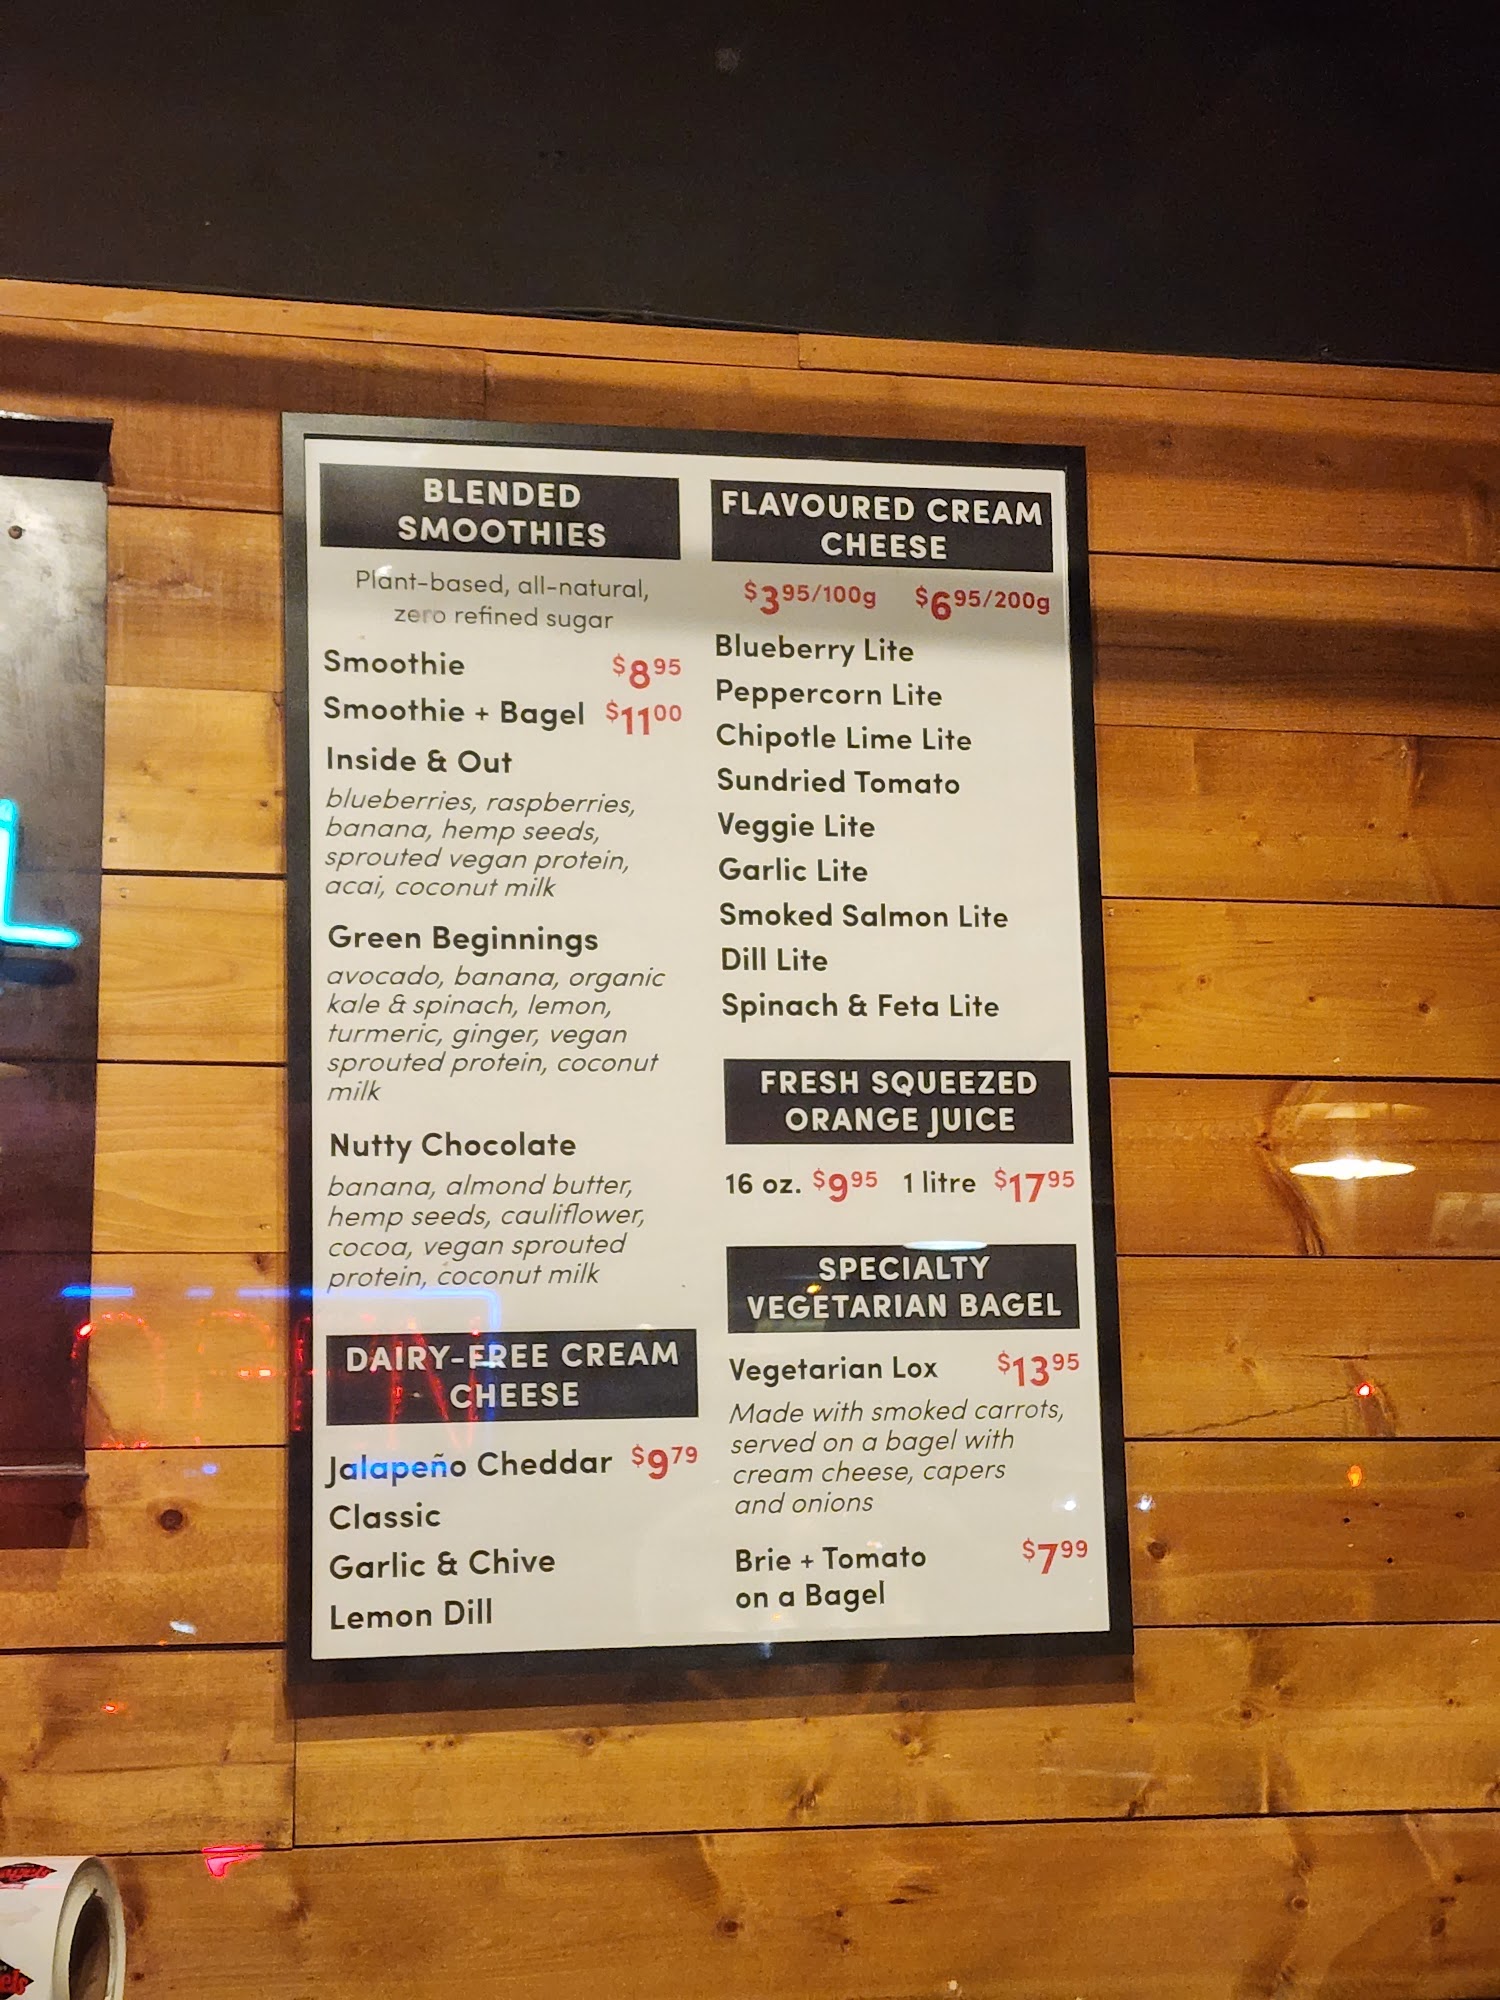 BLENDED
SMOOTHIES
Plant-based, all-natural,
zero refined sugar
Smoothie $8.95
Smoothie + Bagel $11.00
Inside & Out
blueberries, raspberries,
banana, hemp seeds,
sprouted vegan protein,
acai, coconut milk
Green Beginnings
avocado, banana, organic
kale & spinach, lemon,
turmeric, ginger, vegan
sprouted protein, coconut
milk
Nutty Chocolate
banana, almond butter,
hemp seeds, cauliflower,
cocoa, vegan sprouted
protein, coconut milk
DAIRY-FREE CREAM
CHEESE
Jalapeño Cheddar $9 79
Classic
Garlic & Chive
Lemon Dill
FLAVOURED CREAM
CHEESE
$3 95/100g $6 95/200g
Blueberry Lite
Peppercorn Lite
Chipotle Lime Lite
Sundried Tomato
Veggie Lite
Garlic Lite
Smoked Salmon Lite
Dill Lite
Spinach & Feta Lite
FRESH SQUEEZED
ORANGE JUICE
16 oz. $9 95 1 litre $17 95
SPECIALTY
VEGETARIAN BAGEL
Vegetarian Lox $13 95
Made with smoked carrots,
served on a bagel with
cream cheese, capers
and onions
Brie + Tomato $7 99
on a Bagel